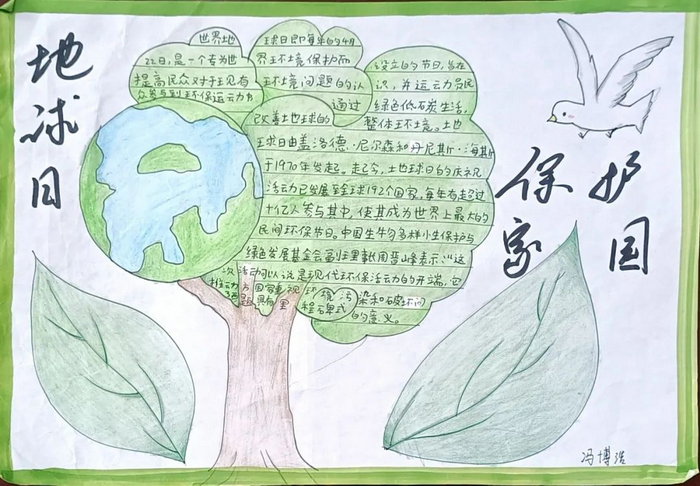 地球日
世界地
球日即每年的4月
22日,是一个专为世
界环境保护而
设立的节日,旨在
提高民众对于现有
环境问题的认
识,并运动员民
众参与到环保运动中
通过
绿色低石炭生活,
改善地球的
整体环境。地
球日由盖洛德·尼尔森和丹尼斯·海斯
于1970年发起。起今,地球日的庆祝
活动已发展至全球192个国家,每年有超过
十亿人参与其中,使其成为世界上最大的
民间环保节日。中国生物多样小生保护与
绿色发展基金会副
表示:"这
次活动可以说是现代环保活动的开端,它
推动了
国家重视环境污
染和破坏问
题
具有里
程碑式
的意义。
保护
家国
冯博浩